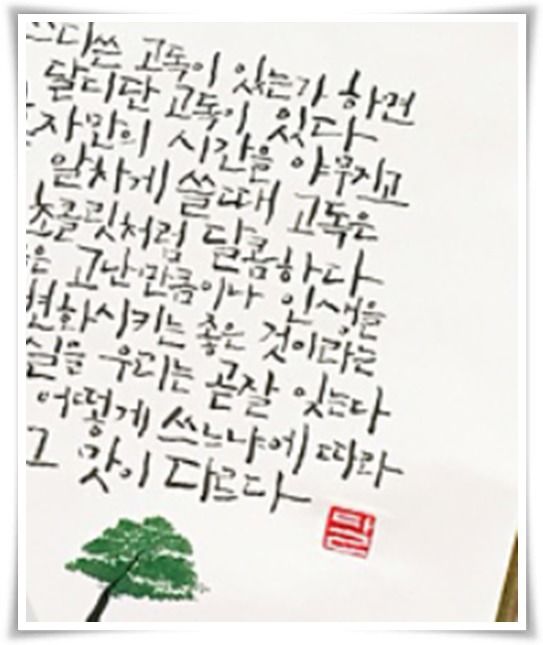 쓰디쓴 고독이 있는가 하면
달디단 고독이 있다
혼자만의 시간을 야무지고
알차게 쓸때 고독은
초콜릿처럼 달콤하다
은 고난만큼이나 인생을
변화시키는 좋은 것이라는
실을 우리는 곧잘 잊는다
어떻게 쓰느냐에 따라
그 맛이 다르다